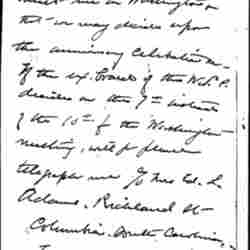 me in Washington
that we may decide upon
the anniversary Celebration.
If the ex. board of the W.S.P.
decides on the 7th instead
of the 10th for the Washington
meeting, will you please
telegraph me % Mrs Ed. L.
Adams, Richland St
Columbia, South Carolina.